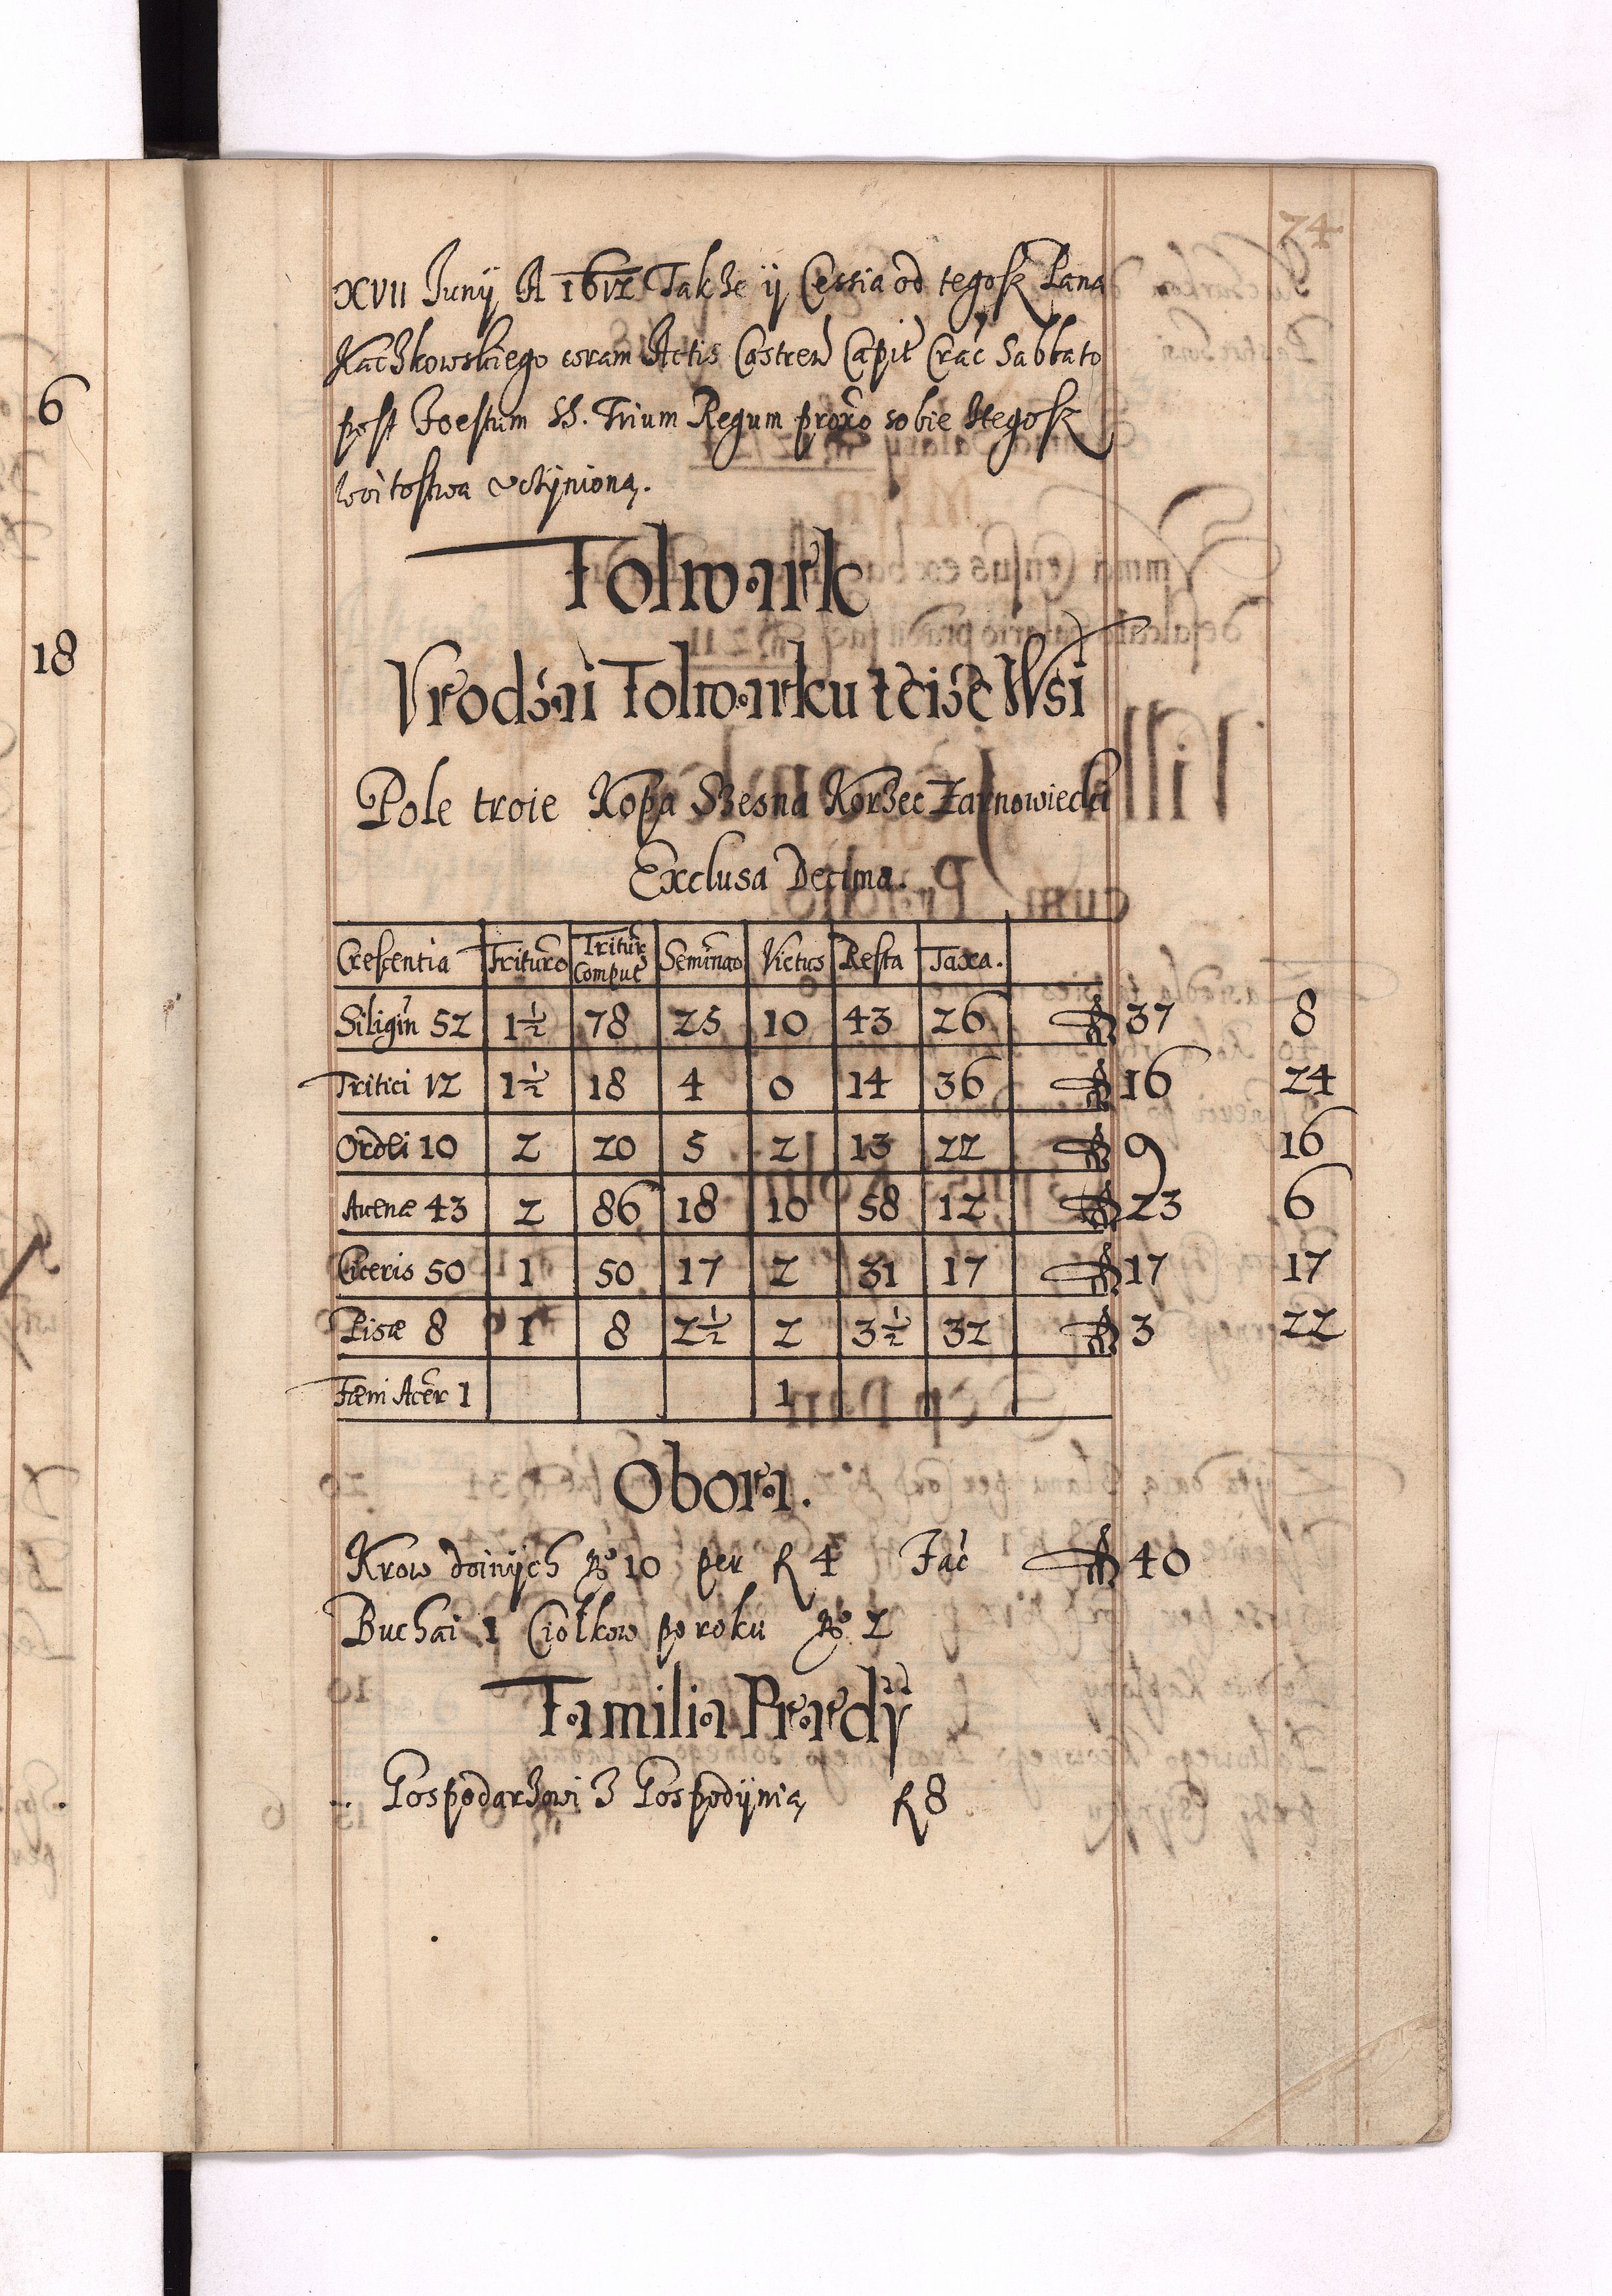 74
XVII Junÿ A 1612 Takze ÿ Cessia od tegosz Pana
Kaczkowskiego coram Actis Castren Capit Crac Sabbato
post Foestum SS. Trium Regum proxo sobie ktegosz
woitostwa vczÿniona.
Folwark
Vrodzai Folwarku teize Wsi
Pole troie Kopa Szesna Korzec Zarnowiecki
Exclusa Decima.
Crescentia Trituro Tritur Comput Seminao Victus Resta Taxa.
Siligin 52 1½ 78 25 10 43 26 37 8
Tritici 12 1½ 18 4 0 14 36 16 24
Ordei 10 2 20 5 2 13 22 9 16
Avenæ 43 2 86 18 10 58 12 23 6
Ciceris 50 1 50 17 2 31 17 17 17
Pisæ 8 1 8 2½ 2 3½ 32 3 22
Fæni Acer 1 1
Obora.
Krow doinÿch No 10 per f 4 Fac 40
Buchai 1 Ciołkow po roku No 2
Familia Prædÿ
Gospodarzowi z Gospodÿnią f 8
6
18